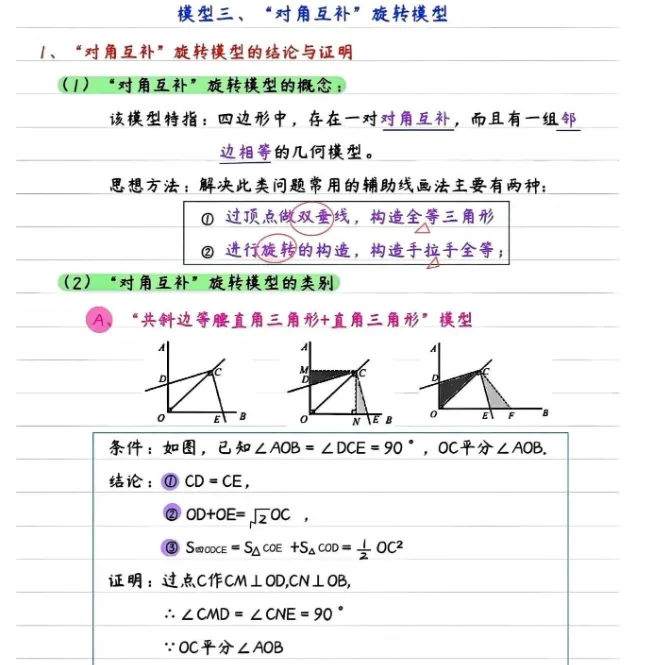 模型三、“对角互补”旋转模型
1、“对角互补”旋转模型的结论与证明
（1）“对角互补”旋转模型的概念：
该模型特指：四边形中，存在一对对角互补，而且有一组邻
边相等的几何模型。
思想方法：解决此类问题常用的辅助线画法主要有两种：
① 过顶点做双垂线，构造全等三角形
② 进行旋转的构造，构造手拉手全等；
（2）“对角互补”旋转模型的类别
A、“共斜边等腰直角三角形+直角三角形”模型
A D C O E B
A M D C O N E B
A D C O E F B
条件：如图，已知∠AOB = ∠DCE = 90°，OC平分∠AOB.
结论：① CD = CE，
② OD+OE=√2OC ，
③ S四ODCE = S△COE +S△COD = 1/2 OC²
证明：过点C作CM⊥OD,CN⊥OB,
∴ ∠CMD = ∠CNE = 90°
∵ OC平分∠AOB